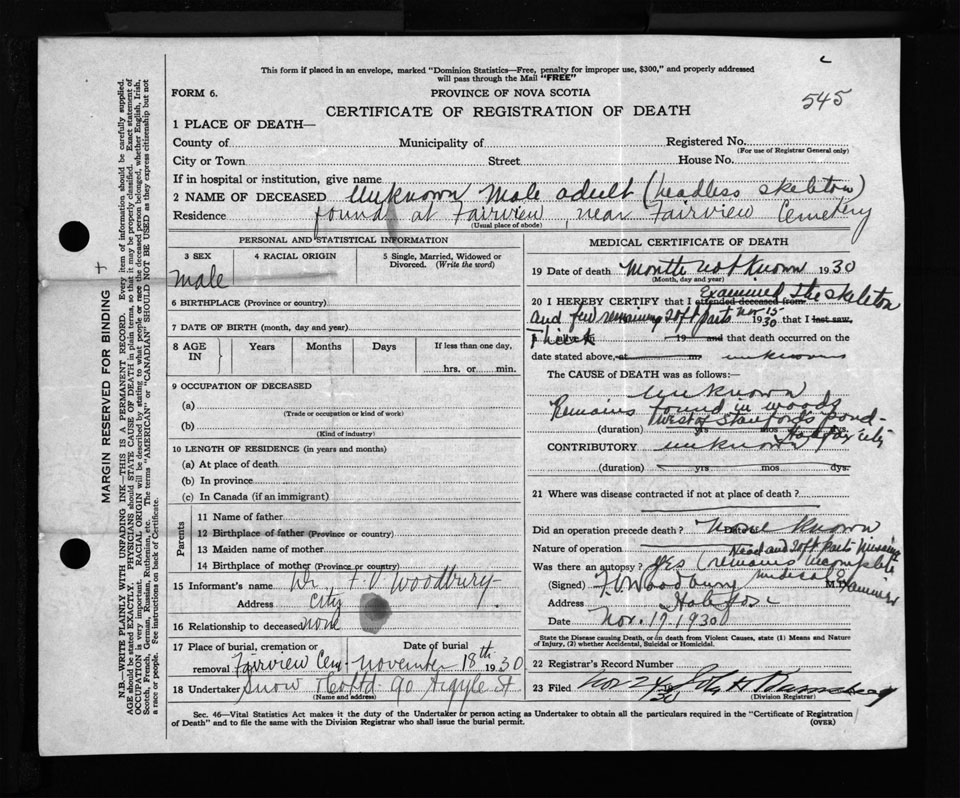 c
545
This form if placed in an envelope, marked "Dominion Statistics—Free, penalty for improper use, $300," and properly addressed
will pass through the Mail "FREE"
FORM 6.
PROVINCE OF NOVA SCOTIA
CERTIFICATE OF REGISTRATION OF DEATH
1 PLACE OF DEATH—
County of Municipality of Registered No.
(For use of Registrar General only)
City or Town Street House No.
If in hospital or institution, give name
2 NAME OF DECEASED Unknown male adult (headless skeleton)
Residence found at Fairview, near Fairview Cemetery
(Usual place of abode)
PERSONAL AND STATISTICAL INFORMATION
3 SEX 4 RACIAL ORIGIN 5 Single, Married, Widowed or
Divorced. (Write the word)
Male
6 BIRTHPLACE (Province or country)
7 DATE OF BIRTH (month, day and year)
8 AGE IN Years Months Days If less than one day,
hrs. or min.
9 OCCUPATION OF DECEASED
(a)
(Trade or occupation or kind of work)
(b)
(Kind of industry)
10 LENGTH OF RESIDENCE (in years and months)
(a) At place of death
(b) In province
(c) In Canada (if an immigrant)
Parents
11 Name of father
12 Birthplace of father (Province or country)
13 Maiden name of mother
14 Birthplace of mother (Province or country)
15 Informant's name Dr. F. V. Woodbury
Address city
16 Relationship to deceased none
17 Place of burial, cremation or Date of burial
removal Fairview Cem. november 18th 1930
18 Undertaker Snow & Co Ltd 90 Argyle St
(Name and address)
MEDICAL CERTIFICATE OF DEATH
19 Date of death Month not known 1930
(Month, day and year)
20 I HEREBY CERTIFY that I attended deceased from Examined the skeleton
and few remaining soft parts Nov 15 1930 that I last saw
19 and that death occurred on the
date stated above, at m unknown
The CAUSE of DEATH was as follows:—
unknown
Remains found in woods
west of pond
(duration) yrs. mos. dys.
Halifax city
CONTRIBUTORY unknown
(duration) yrs mos dys.
21 Where was disease contracted if not at place of death?
Did an operation precede death? none known
Nature of operation
Head and soft parts missing
Was there an autopsy? yes (remains incomplete
(Signed) F. V. Woodbury medical Examiner M.D.
Address Halifax
Date Nov. 17 1930
State the Disease causing Death, or in death from Violent Causes, state (1) Means and Nature
of Injury, (2) whether Accidental, Suicidal or Homicidal.
22 Registrar's Record Number
23 Filed Nov 24 30 John H
(Division Registrar)
Sec. 46—Vital Statistics Act makes it the duty of the Undertaker or person acting as Undertaker to obtain all the particulars required in the "Certificate of Registration
of Death" and to file the same with the Division Registrar who shall issue the burial permit. (OVER)
MARGIN RESERVED FOR BINDING
N.B.—WRITE PLAINLY WITH UNFADING INK—THIS IS A PERMANENT RECORD. Every item of information should be carefully supplied.
AGE should be stated EXACTLY. PHYSICIANS should STATE CAUSE OF DEATH in plain terms, so that it may be properly classified. Exact statement of
OCCUPATION is very important. RACIAL ORIGIN will be described by stating to what people or race the deceased person belonged, whether English, Irish,
Scotch, French, German, Russian, Ruthenian, etc. The terms "AMERICAN" or "CANADIAN" SHOULD NOT BE USED as they express citizenship but not
a race or people. See instructions on back of Certificate.